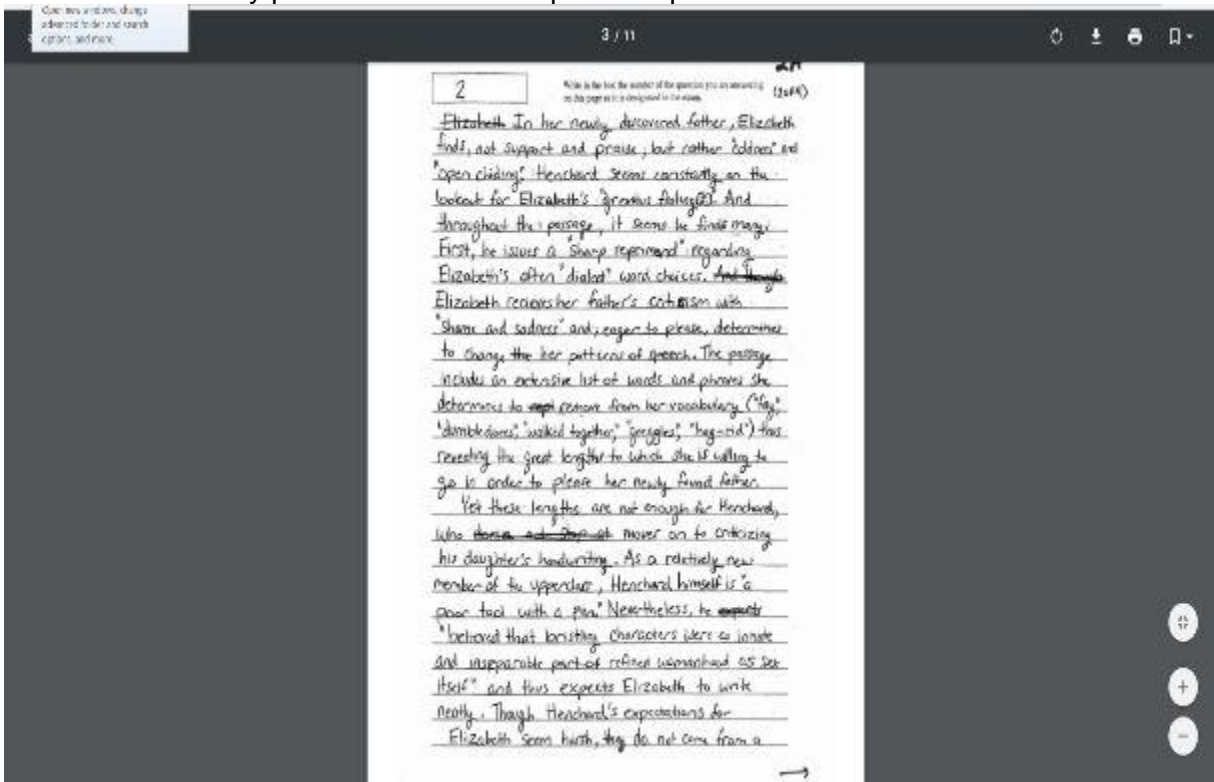 Open new windows, change
advanced folder and search
options, and more.
3 / 11
2A
2
Write in the box the number of the question you are answering
on this page as it is designated in the exam.
(2of4)
Elizabeth In her newly discovered father, Elizabeth
finds, not support and praise, but rather "coldness" and
"open chiding." Henchard seems constantly on the
lookout for Elizabeth's "grievous failing[s]". And
throughout the passage, it seems he finds many.
First, he issues a "sharp reprimand" regarding
Elizabeth's often "dialect" word choices. And though
Elizabeth receives her father's criticism with
"shame and sadness" and, eager to please, determines
to change the her patterns of speech. The passage
includes an extensive list of words and phrases she
determines to remove from her vocabulary ("fay,"
"dumbledores," "walked together," "greggles", "hag-rid") thus
revealing the great lengths to which she is willing to
go in order to please her newly found father.
Yet these lengths are not enough for Henchard,
who moves on to criticizing
his daughter's handwriting. As a relatively new
member of the upperclass, Henchard himself is "a
poor tool with a pen." Nevertheless, he expects
"believed that bristling characters were as innate
and inseparable part of refined womanhood as sex
itself" and thus expects Elizabeth to write
neatly. Though Henchard's expectations for
Elizabeth seem harsh, they do not come from a